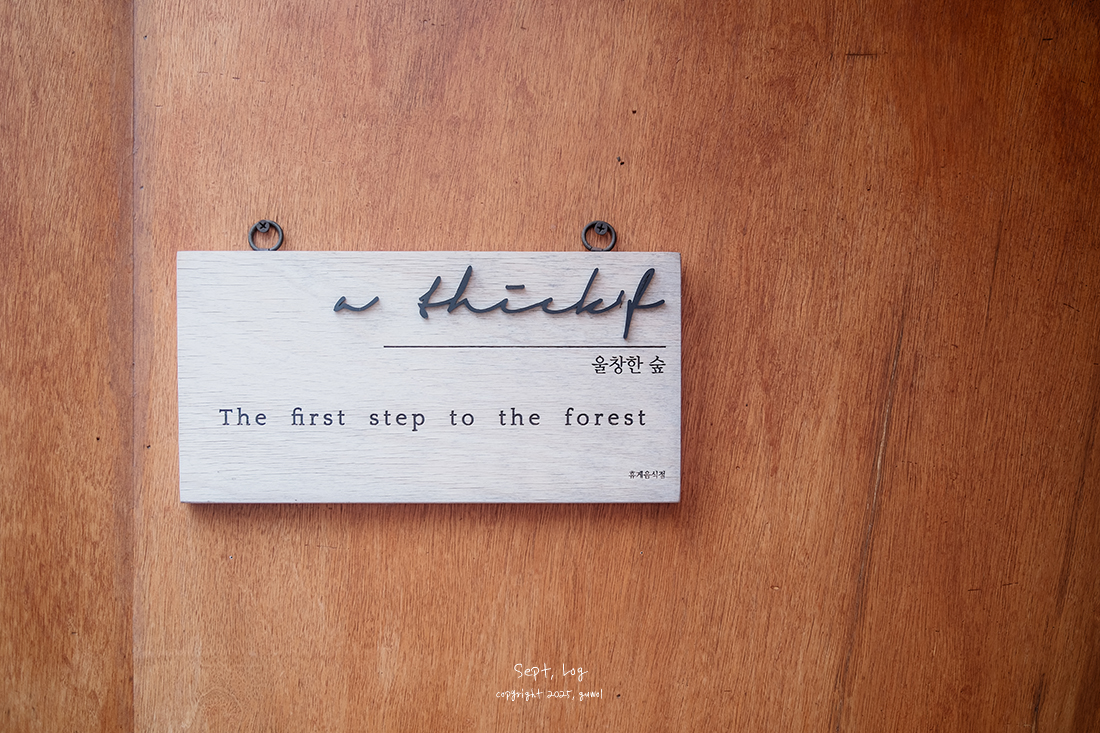 a thickf
울창한 숲
The first step to the forest
휴게음식점
Sept, Log
copyright 2025, guwol